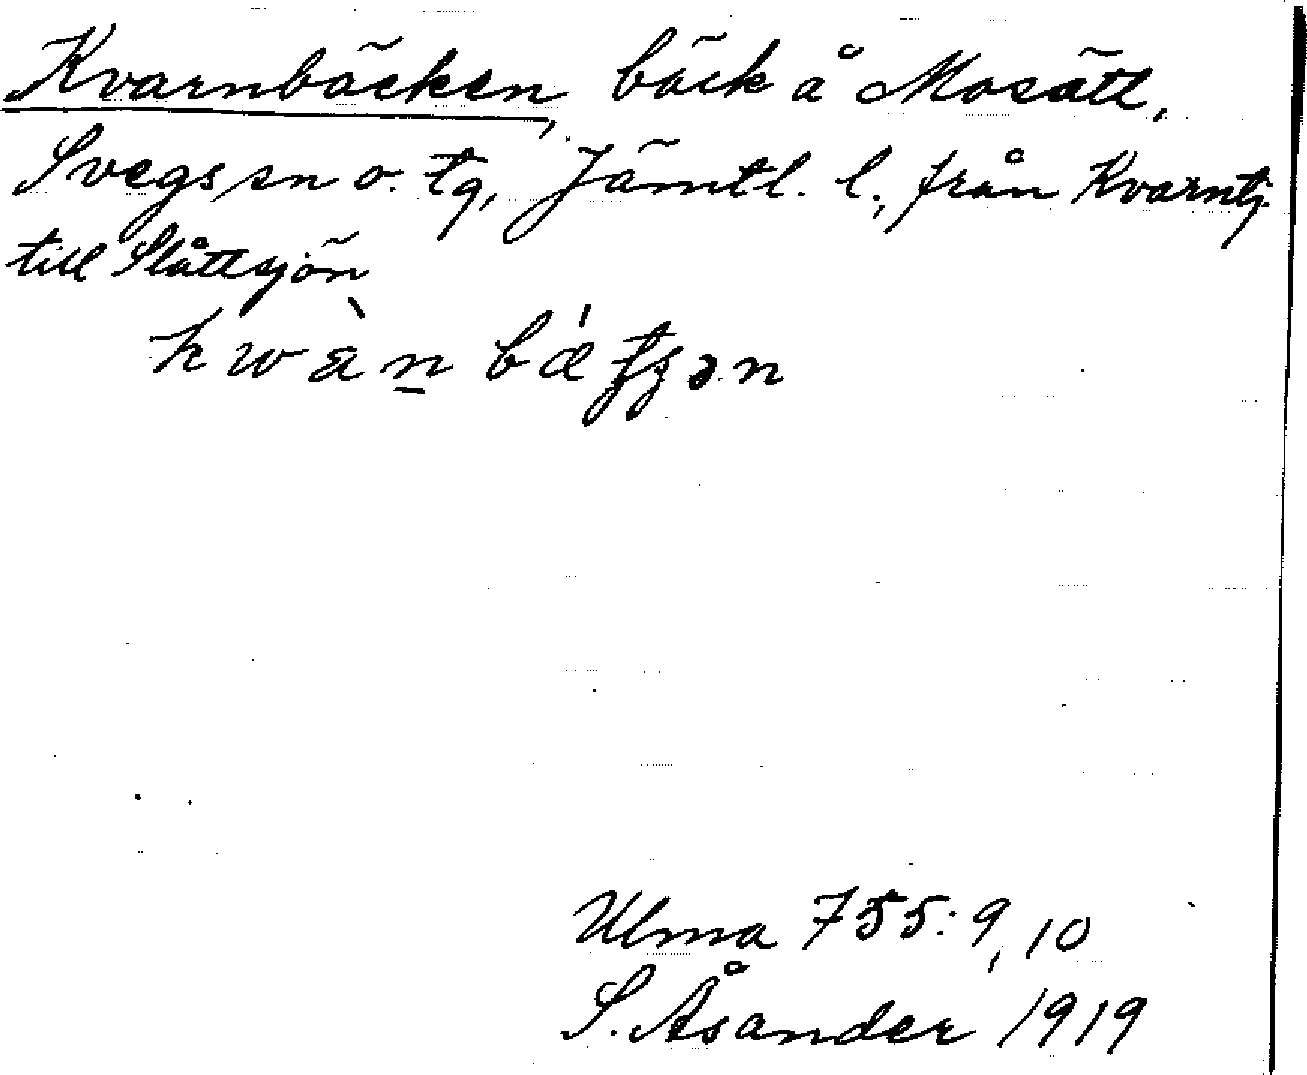 Kvarnbäcken, bäck å Mosätt,
Svegs sn o. tg, Jämtl. l., från Kvarntj.
till Slåttsjön
Ulma 755: 9, 10
S. Åsander 1919